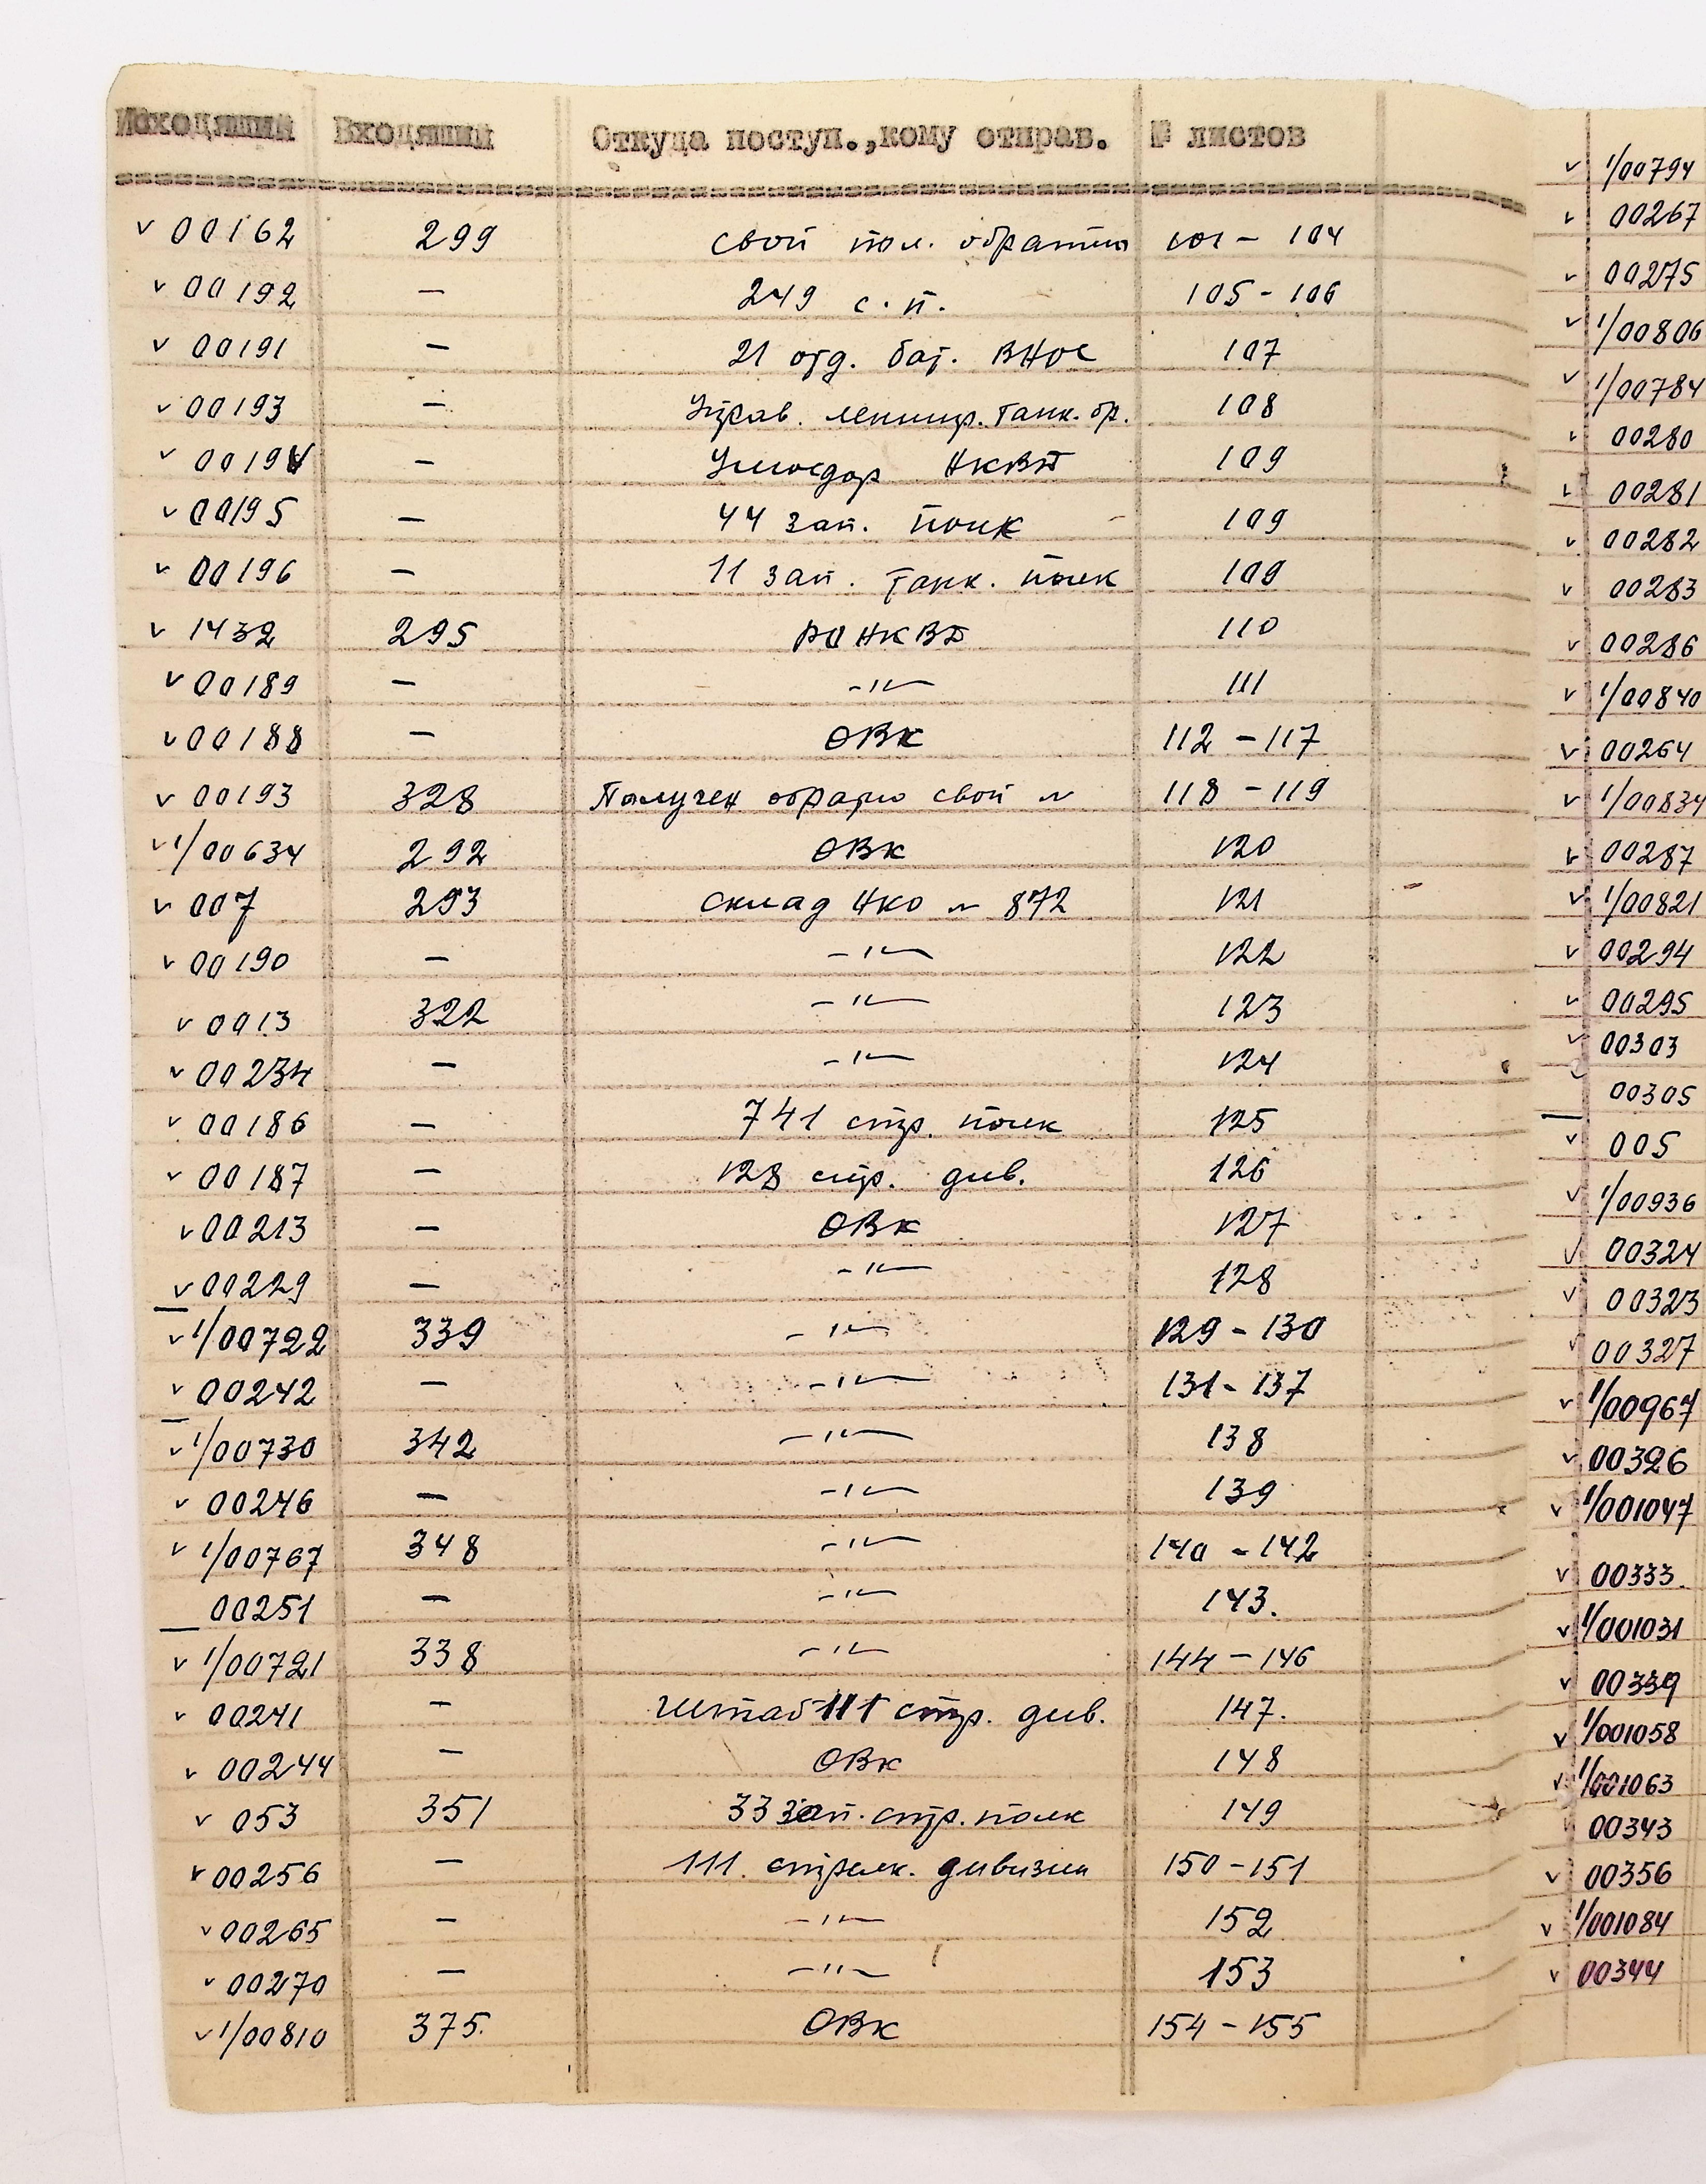 Исходящий Входящий Откуда поступ.,кому отправ. № листов
v 00162 299 свой пол. обратно 101 - 104
v 00192 — 249 с.п. 105 - 106
v 00191 — 21 отд. бат. ВНОС 107
v 00193 — Управ. ленингр. танк. бр. 108
v 00194 — НКВД 109
v 00195 — 44 зап. полк 109
v 00196 — 11 зап. танк. полк 109
v 1432 295 РО НКВД 110
v 00189 — -"- 111
v 00188 — ОВК 112 - 117
v 00193 328 Получен обратно свой № 118 - 119
v 1/00634 292 ОВК 120
v 007 293 Склад НКО № 872 121
v 00190 — -"- 122
v 0013 322 -"- 123
v 00234 — -"- 124
v 00186 — 741 стр. полк 125
v 00187 — 128 стр. див. 126
v 00213 — ОВК 127
v 00229 — -"- 128
v 1/00722 339 -"- 129 - 130
v 00242 — -"- 131 - 137
v 1/00730 342 -"- 138
v 00246 — -"- 139
v 1/00767 348 -"- 140 - 142
00251 — -"- 143.
v 1/00721 338 -"- 144 - 146
v 00241 — штаб 111 стр. див. 147.
v 00244 — ОВК 148
v 053 351 33 зап. стр. полк 149
v 00256 — 111. стрелк. дивизии 150 - 151
v 00265 — -"- 152
v 00270 — -"- 153
v 1/00810 375. ОВК 154 - 155
v 1/00794
v 00267
v 00275
v 1/00806
v 1/00784
v 00280
v 00281
v 00282
v 00283
v 00286
v 1/00840
v 00264
v 1/00834
v 00287
v 1/00821
v 00294
v 00295
v 00303
v 00305
v 005
v 1/00936
v 00324
v 00323
v 00327
v 1/00967
v 00326
v 1/001047
v 00333
v 1/001031
v 00339
v 1/001058
v 1/001063
00343
v 00356
v 1/001084
v 00344